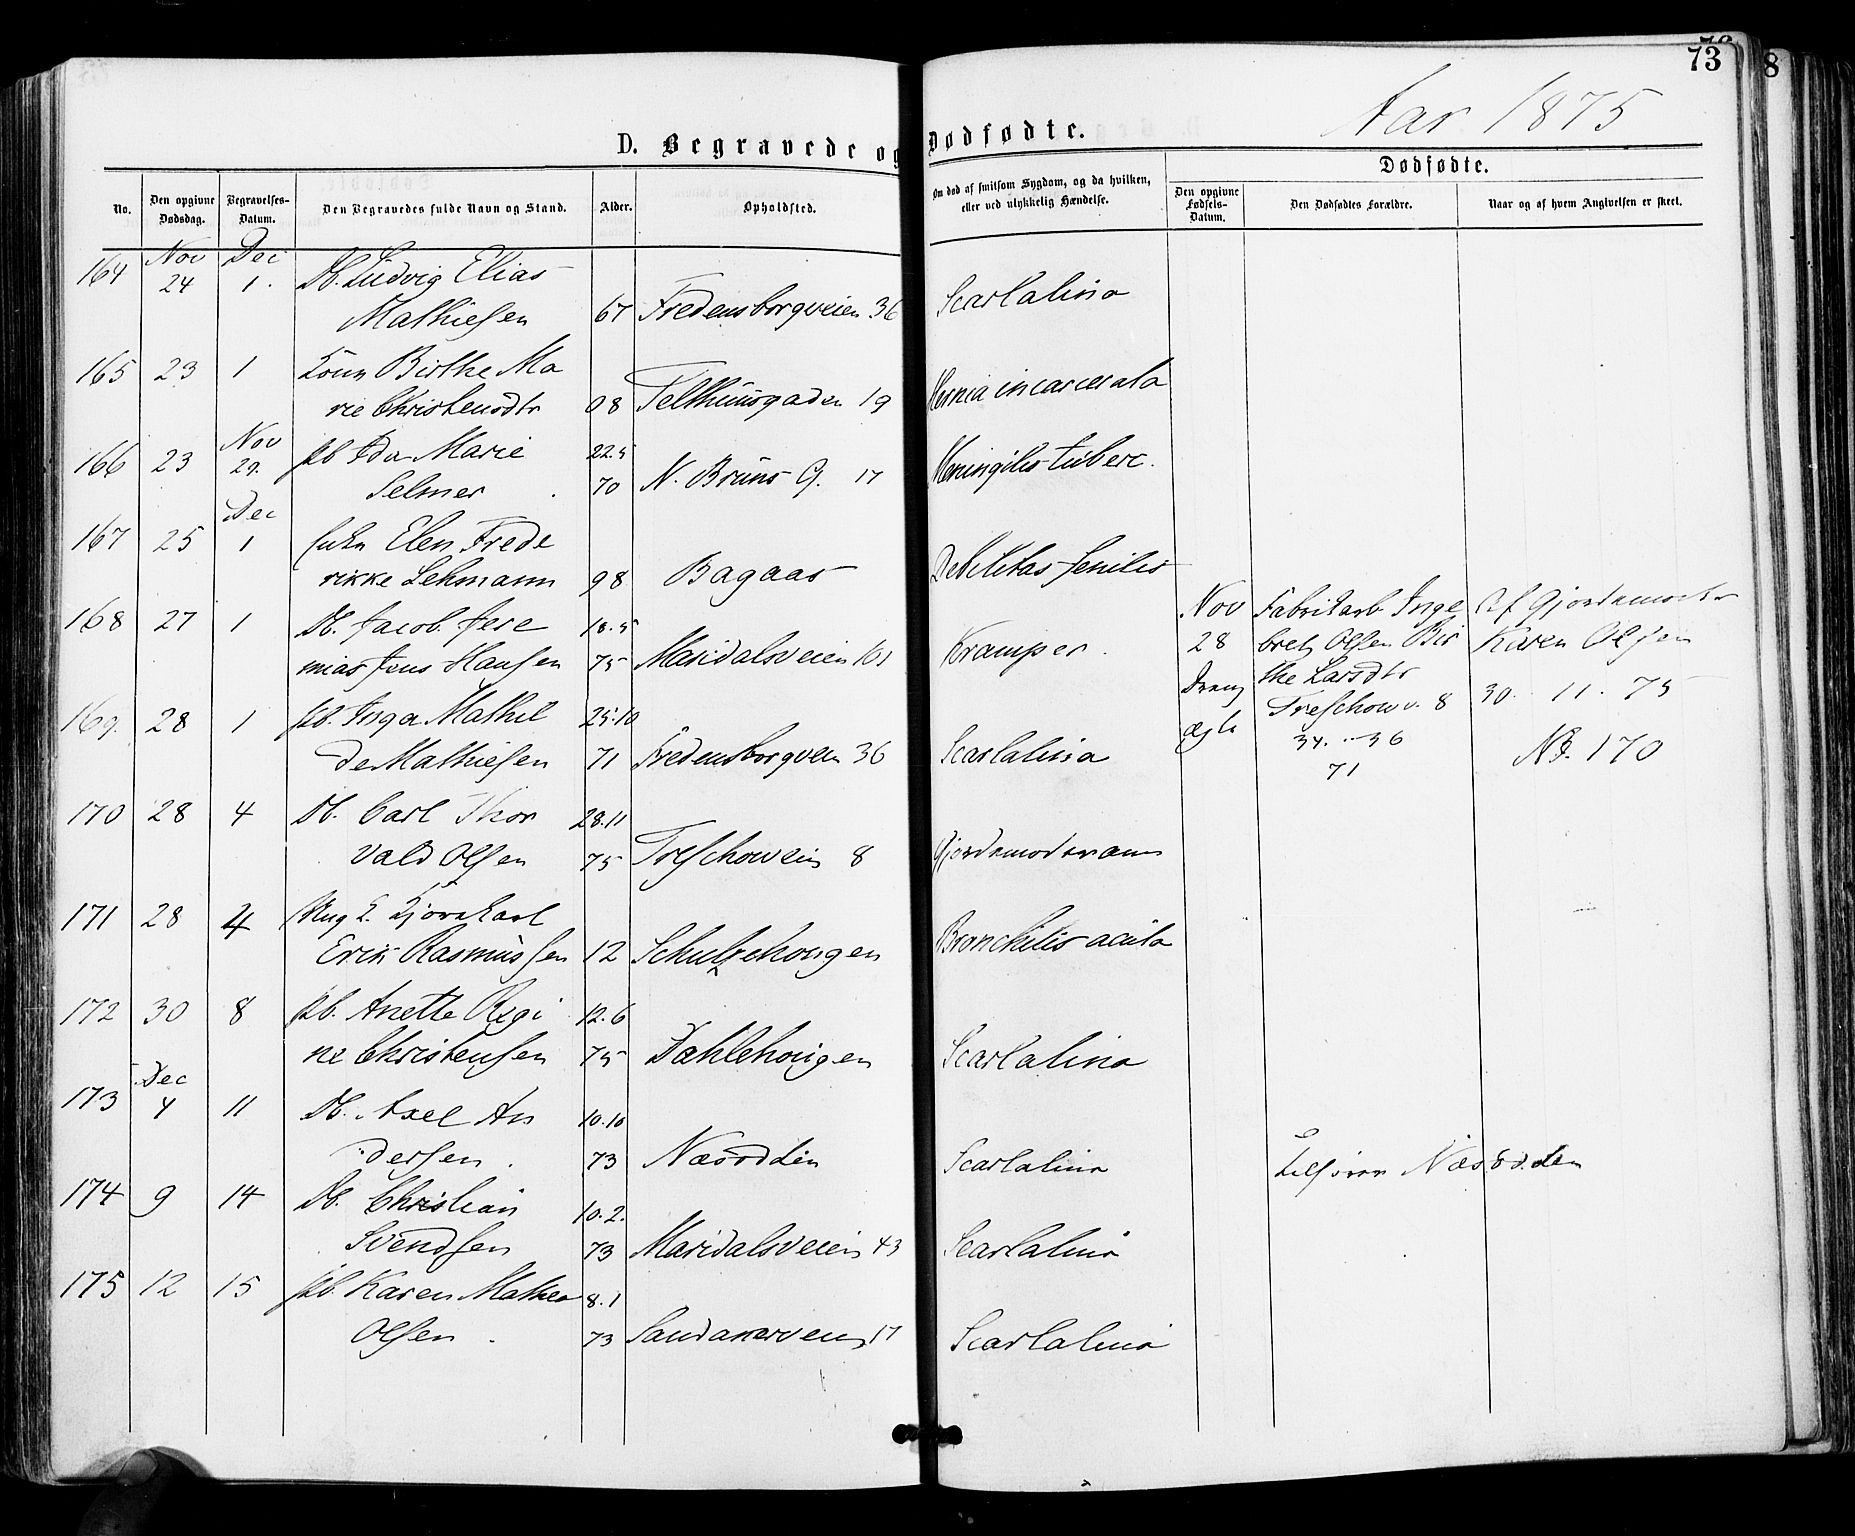 73
Aar 1875
D. Begravede og Dødfødte.
No.
Den opgivne Dødsdag.
Begravelses-Datum.
Den Begravedes fulde Navn og Stand.
Alder.
Opholdsted.
Om død af smitsom Sygdom, og da hvilken,
eller ved ulykkelig Hændelse.
Dødfødte.
Den opgivne Fødsels-Datum.
Den Dødfødtes Forældre.
Naar og af hvem Angivelsen er skeet.
Nov Dec
164 24 1. Db. Ludvig Elias
Mathiesen 67 Fredensborgveien 36 Scarlatina
165 23 1 Birthe Ma
rie Christensdtr 08 Telthusgaden 19 Hernia incarcerata
Nov
166 23 29. pb Ida Marie 22.5
Selmer 70 N. Bruns G. 17 Meningitis tuberc.
Dec
167 25 1 Elen Frede
rikke Lehmann 98 Bagaas Debilitas senilis
168 27 1 Db. Jacob Jere 18.5
mias Jens Hansen 75 Maridalsveien 101 Kramper.
169. 28 1 pb. Inga Mathil 25.10
de Mathiesen 71 Fredensborgveien 36 Scarlatina
Nov Fabrikarb. Inge Af Gjordemoder
28 bret Olsen Bir Karen Olsen
Dreng the Larsdtr
Treschowv. 8 30. 11. 75
ægte 34. - 36
71 No. 170
170 28 4 Db. Carl Thor 28.11
vald Olsen 75 Treschowvein 8
171 28 4 Ung k.
Erik Rasmussen 12 Schultzehougen Bronchitis acuta
172 30 8 pb. Anette Regi 12.6
ne Christensen 75 Dahlehougen Scarlatina
Dec
173 4 11 Db. Axel An 10.10
dersen. 73 Næsodden Scarlatina Næsodden
174 9 14 Db. Christian 10.2.
Svendsen 73 Maridalsveien 43 Scarlatina
175 12 15 pb. Karen Mathea 8.1
Olsen. 73 Sandakerveien 17 Scarlatina
8